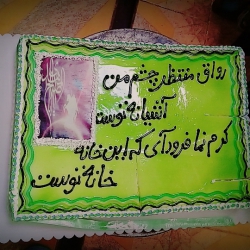 رواق منتظر چشم من
آشیانه توست
کرم نما فرودآی که این خانه
خانه توست